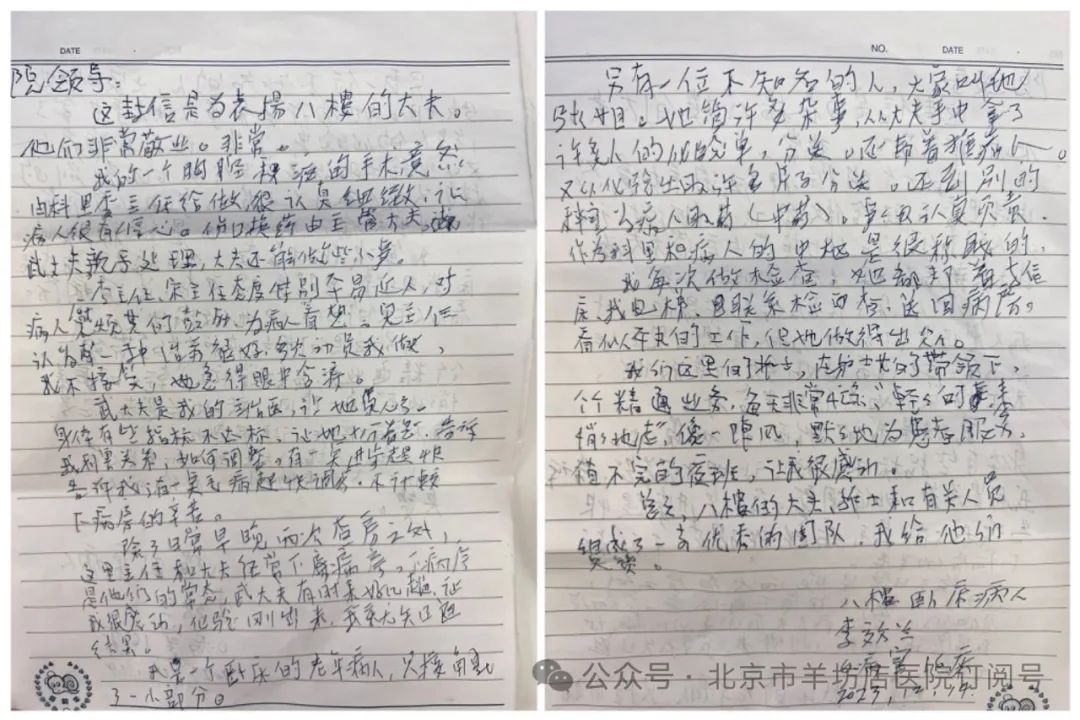 DATE
院领导:
这封信是为表扬八楼的大夫。
他们非常敬业。非常。
我的一个胸腔积液的手术竟然
由科里李主任给做,很认真细致,让
病人很有信心。伤口换药由主管大夫
武大夫亲手处理,大夫还能做这些小事。
李主任、宋主任态度特别平易近人,对
病人 其 的鼓励,为病人着想。
认为 一种 很好,多次动员我做,
我不接受,她急得眼中含泪。
武大夫是我的主治医,
身体有些指标不达标,让她十分着急,告诉
我利害关系,如何调整。有一定进步赶快
告诉我,有一点毛病赶快调方,不计较
下病房的辛苦。
除了日常早晚两次查房之外,
这里主任和大夫经常下病房,下病房
是他们的常态,武大夫有时来好几趟,让
我很感动,化验刚出来,我未先知道
结果。
我是一个卧床的老年病人,只接触到
了一小部分。
NO. DATE
另有一位不知名的人,大家叫她
张姐。她管许多杂事,从大夫手中拿了
许多人的化验单,分类。还帮着推病人。
又从化验出取许多片子分类。还到别的
科室为病人取药(中药)。 认真负责,
作为科里和病人的中枢是很称职的,
我每次做检查,她都
我由 联系检查,送回病房。
看似平凡的工作,但她做得出众。
我们这里的护士,在护士长的带领下,
个个精通业务,每天非常忙碌,
象一阵风,默默地为患者服务,
值不完的夜班,让我很感动。
总之,八楼的大夫、护士和有关人员
组成了一支优秀的团队,我给他们
点赞。
八楼卧床病人
李
2023.12.
公众号·北京市羊坊店医院订阅号